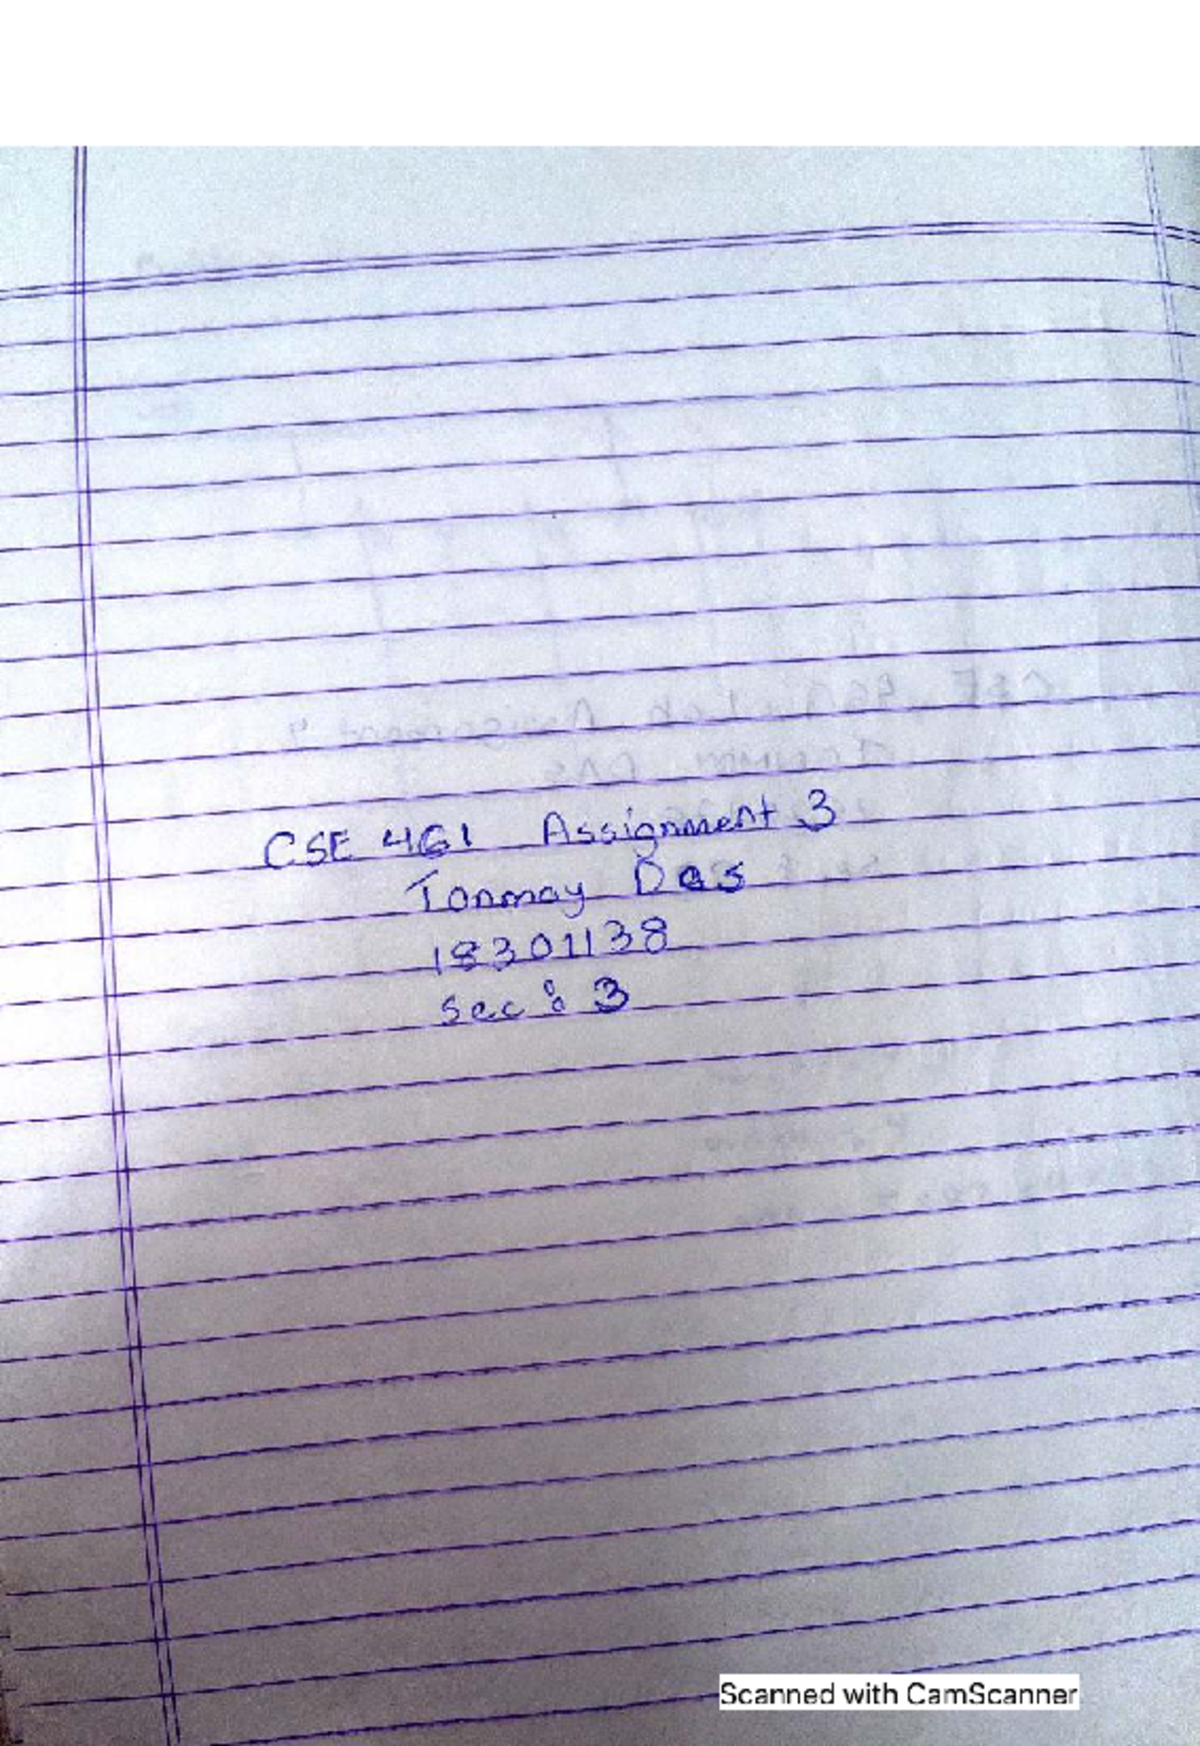 CSE 461 Assignment 3
Tonmoy Das
18301138
Sec : 3
Scanned with CamScanner